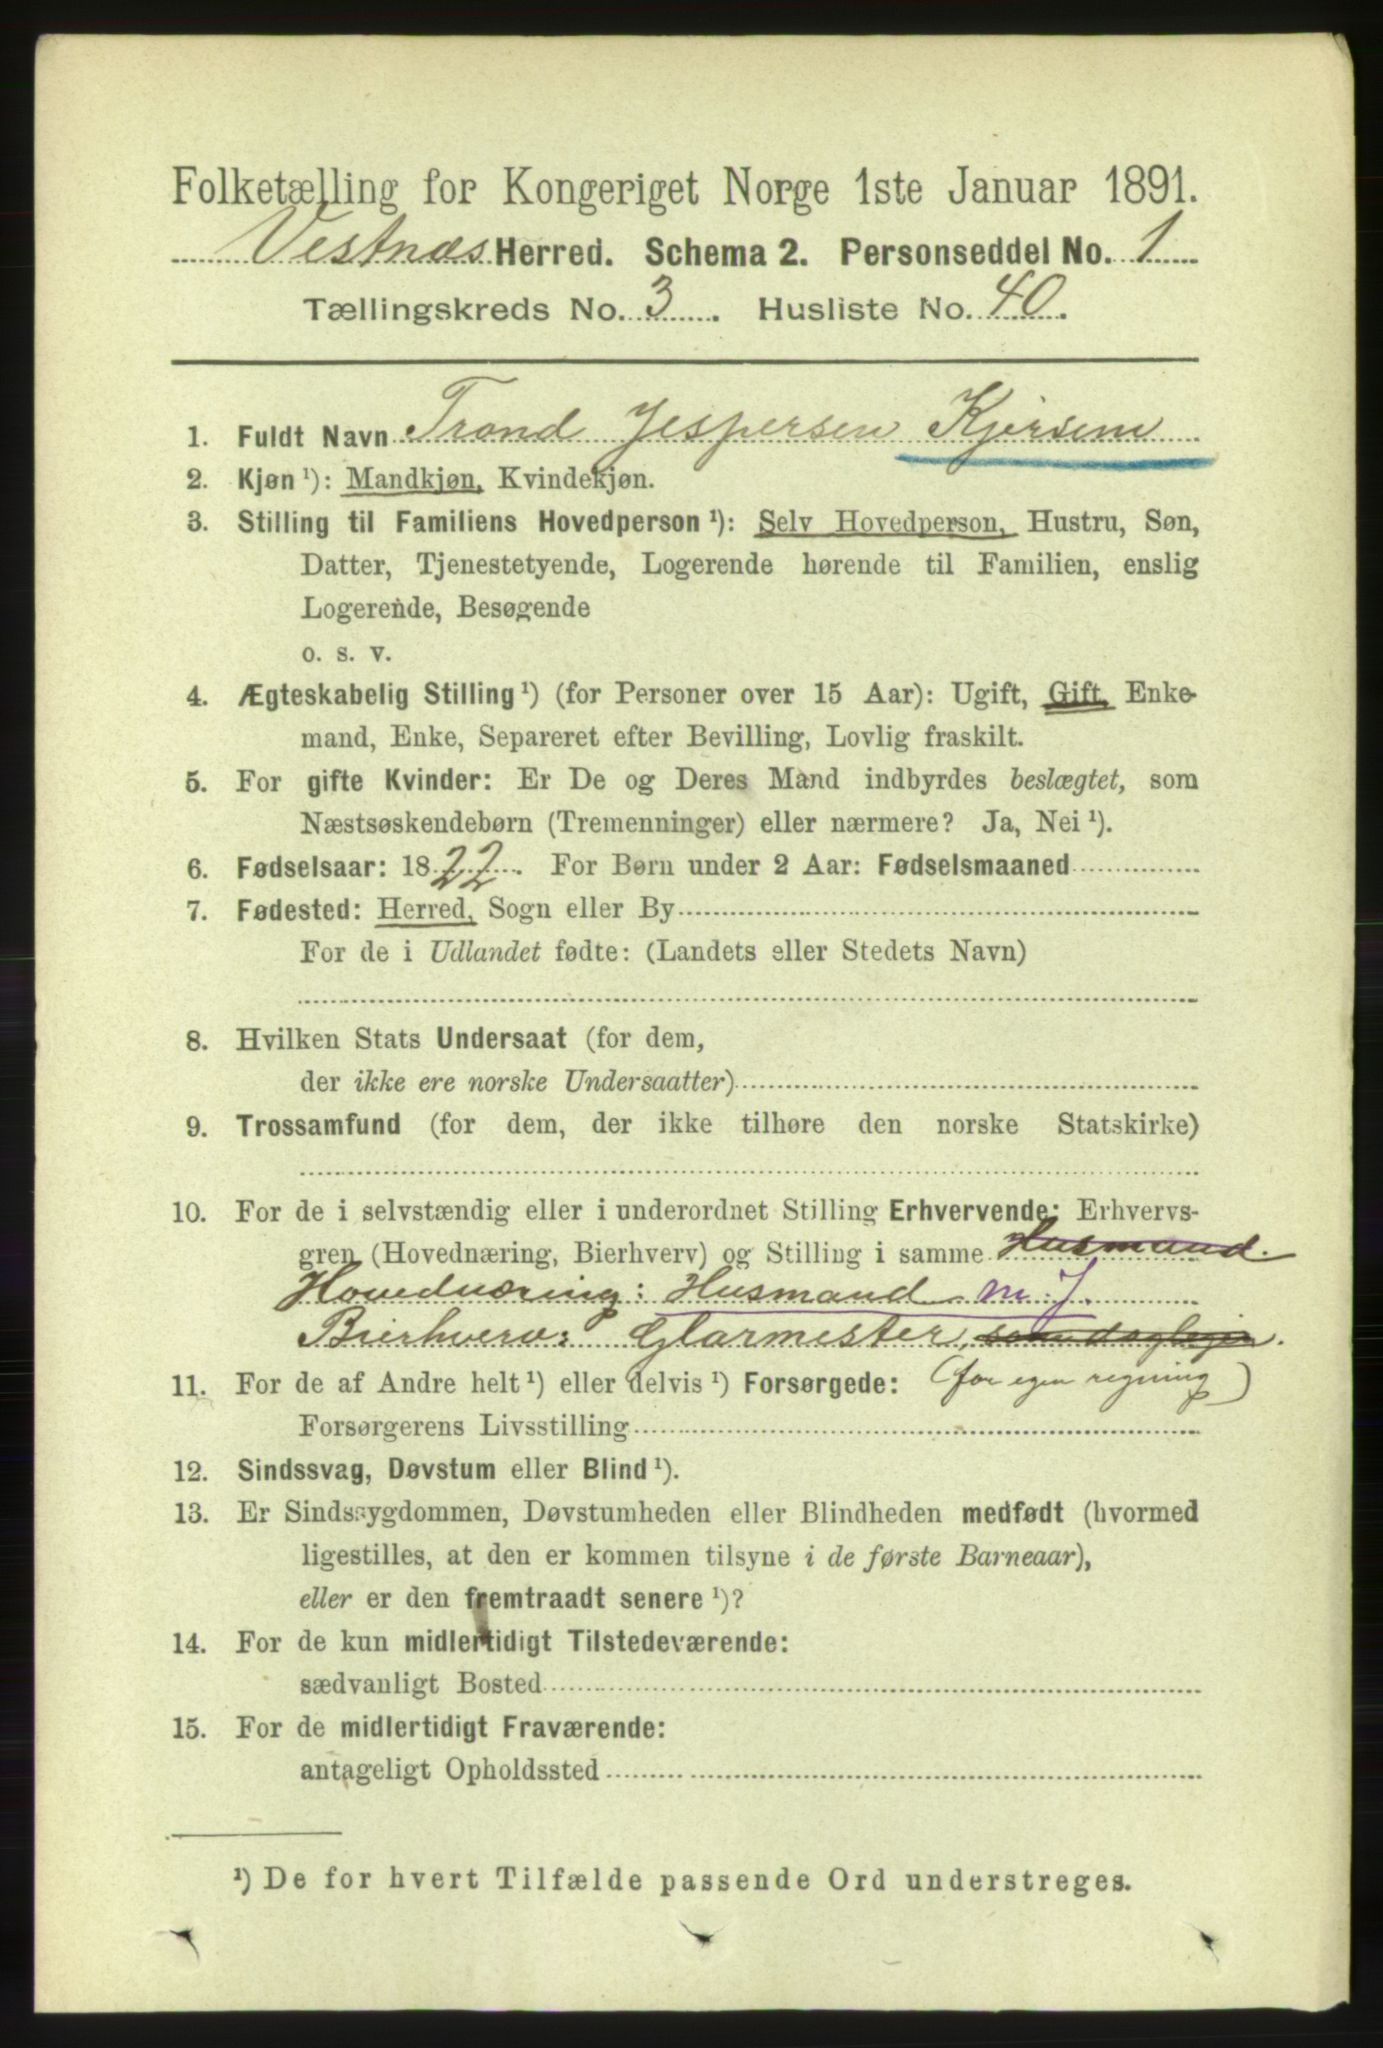 Folketælling for Kongeriget Norge 1ste Januar 1891.
Vestnæs Herred. Schema 2. Personseddel No. 1
Tællingskreds No. 3. Husliste No. 40.
1. Fuldt Navn Trond Jespersen Kjersem
2. Kjøn ¹): Mandkjøn, Kvindekjøn.
3. Stilling til Familiens Hovedperson ¹): Selv Hovedperson, Hustru, Søn,
Datter, Tjenestetyende, Logerende hørende til Familien, enslig
Logerende, Besøgende
o. s. v.
4. Ægteskabelig Stilling ¹) (for Personer over 15 Aar): Ugift, Gift, Enke-
mand, Enke, Separeret efter Bevilling, Lovlig fraskilt.
5. For gifte Kvinder: Er De og Deres Mand indbyrdes beslægtet, som
Næstsøskendebørn (Tremenninger) eller nærmere? Ja, Nei ¹).
6. Fødselsaar: 1822. For Børn under 2 Aar: Fødselsmaaned
7. Fødested: Herred, Sogn eller By
For de i Udlandet fødte: (Landets eller Stedets Navn)
8. Hvilken Stats Undersaat (for dem,
der ikke ere norske Undersaatter)
9. Trossamfund (for dem, der ikke tilhøre den norske Statskirke)
10. For de i selvstændig eller i underordnet Stilling Erhvervende: Erhvervs-
gren (Hovednæring, Bierhverv) og Stilling i samme Husmand.
Hovednæring: Husmand m. J.
Bierhverv: Glarmester, som daglejer.
11. For de af Andre helt ¹) eller delvis ¹) Forsørgede: (for egen regning)
Forsørgerens Livsstilling
12. Sindssvag, Døvstum eller Blind ¹).
13. Er Sindssygdommen, Døvstumheden eller Blindheden medfødt (hvormed
ligestilles, at den er kommen tilsyne i de første Barneaar),
eller er den fremtraadt senere ¹)?
14. For de kun midlertidigt Tilstedeværende:
sædvanligt Bosted
15. For de midlertidigt Fraværende:
antageligt Opholdssted
¹) De for hvert Tilfælde passende Ord understreges.